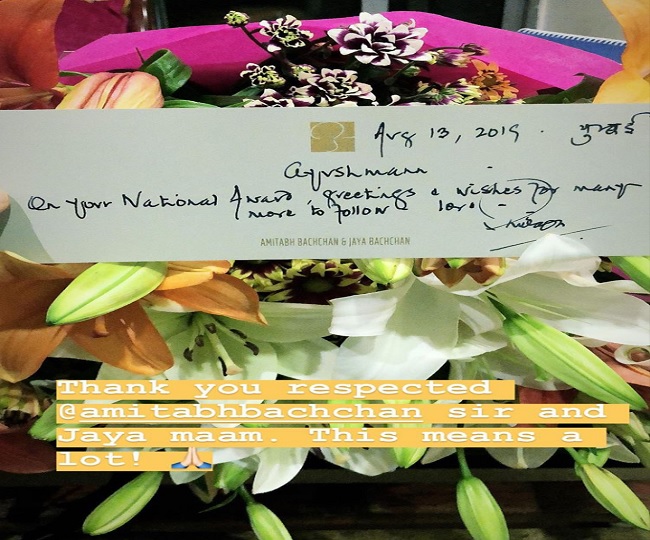 Aug 13, 2019 . मुम्बई
Ayushmann -
On your National Award greetings & wishes for many
more to follow love
AMITABH BACHCHAN & JAYA BACHCHAN
Thank you respected
@amitabhbachchan sir and
Jaya maam. This means a
lot! 🙏🏻